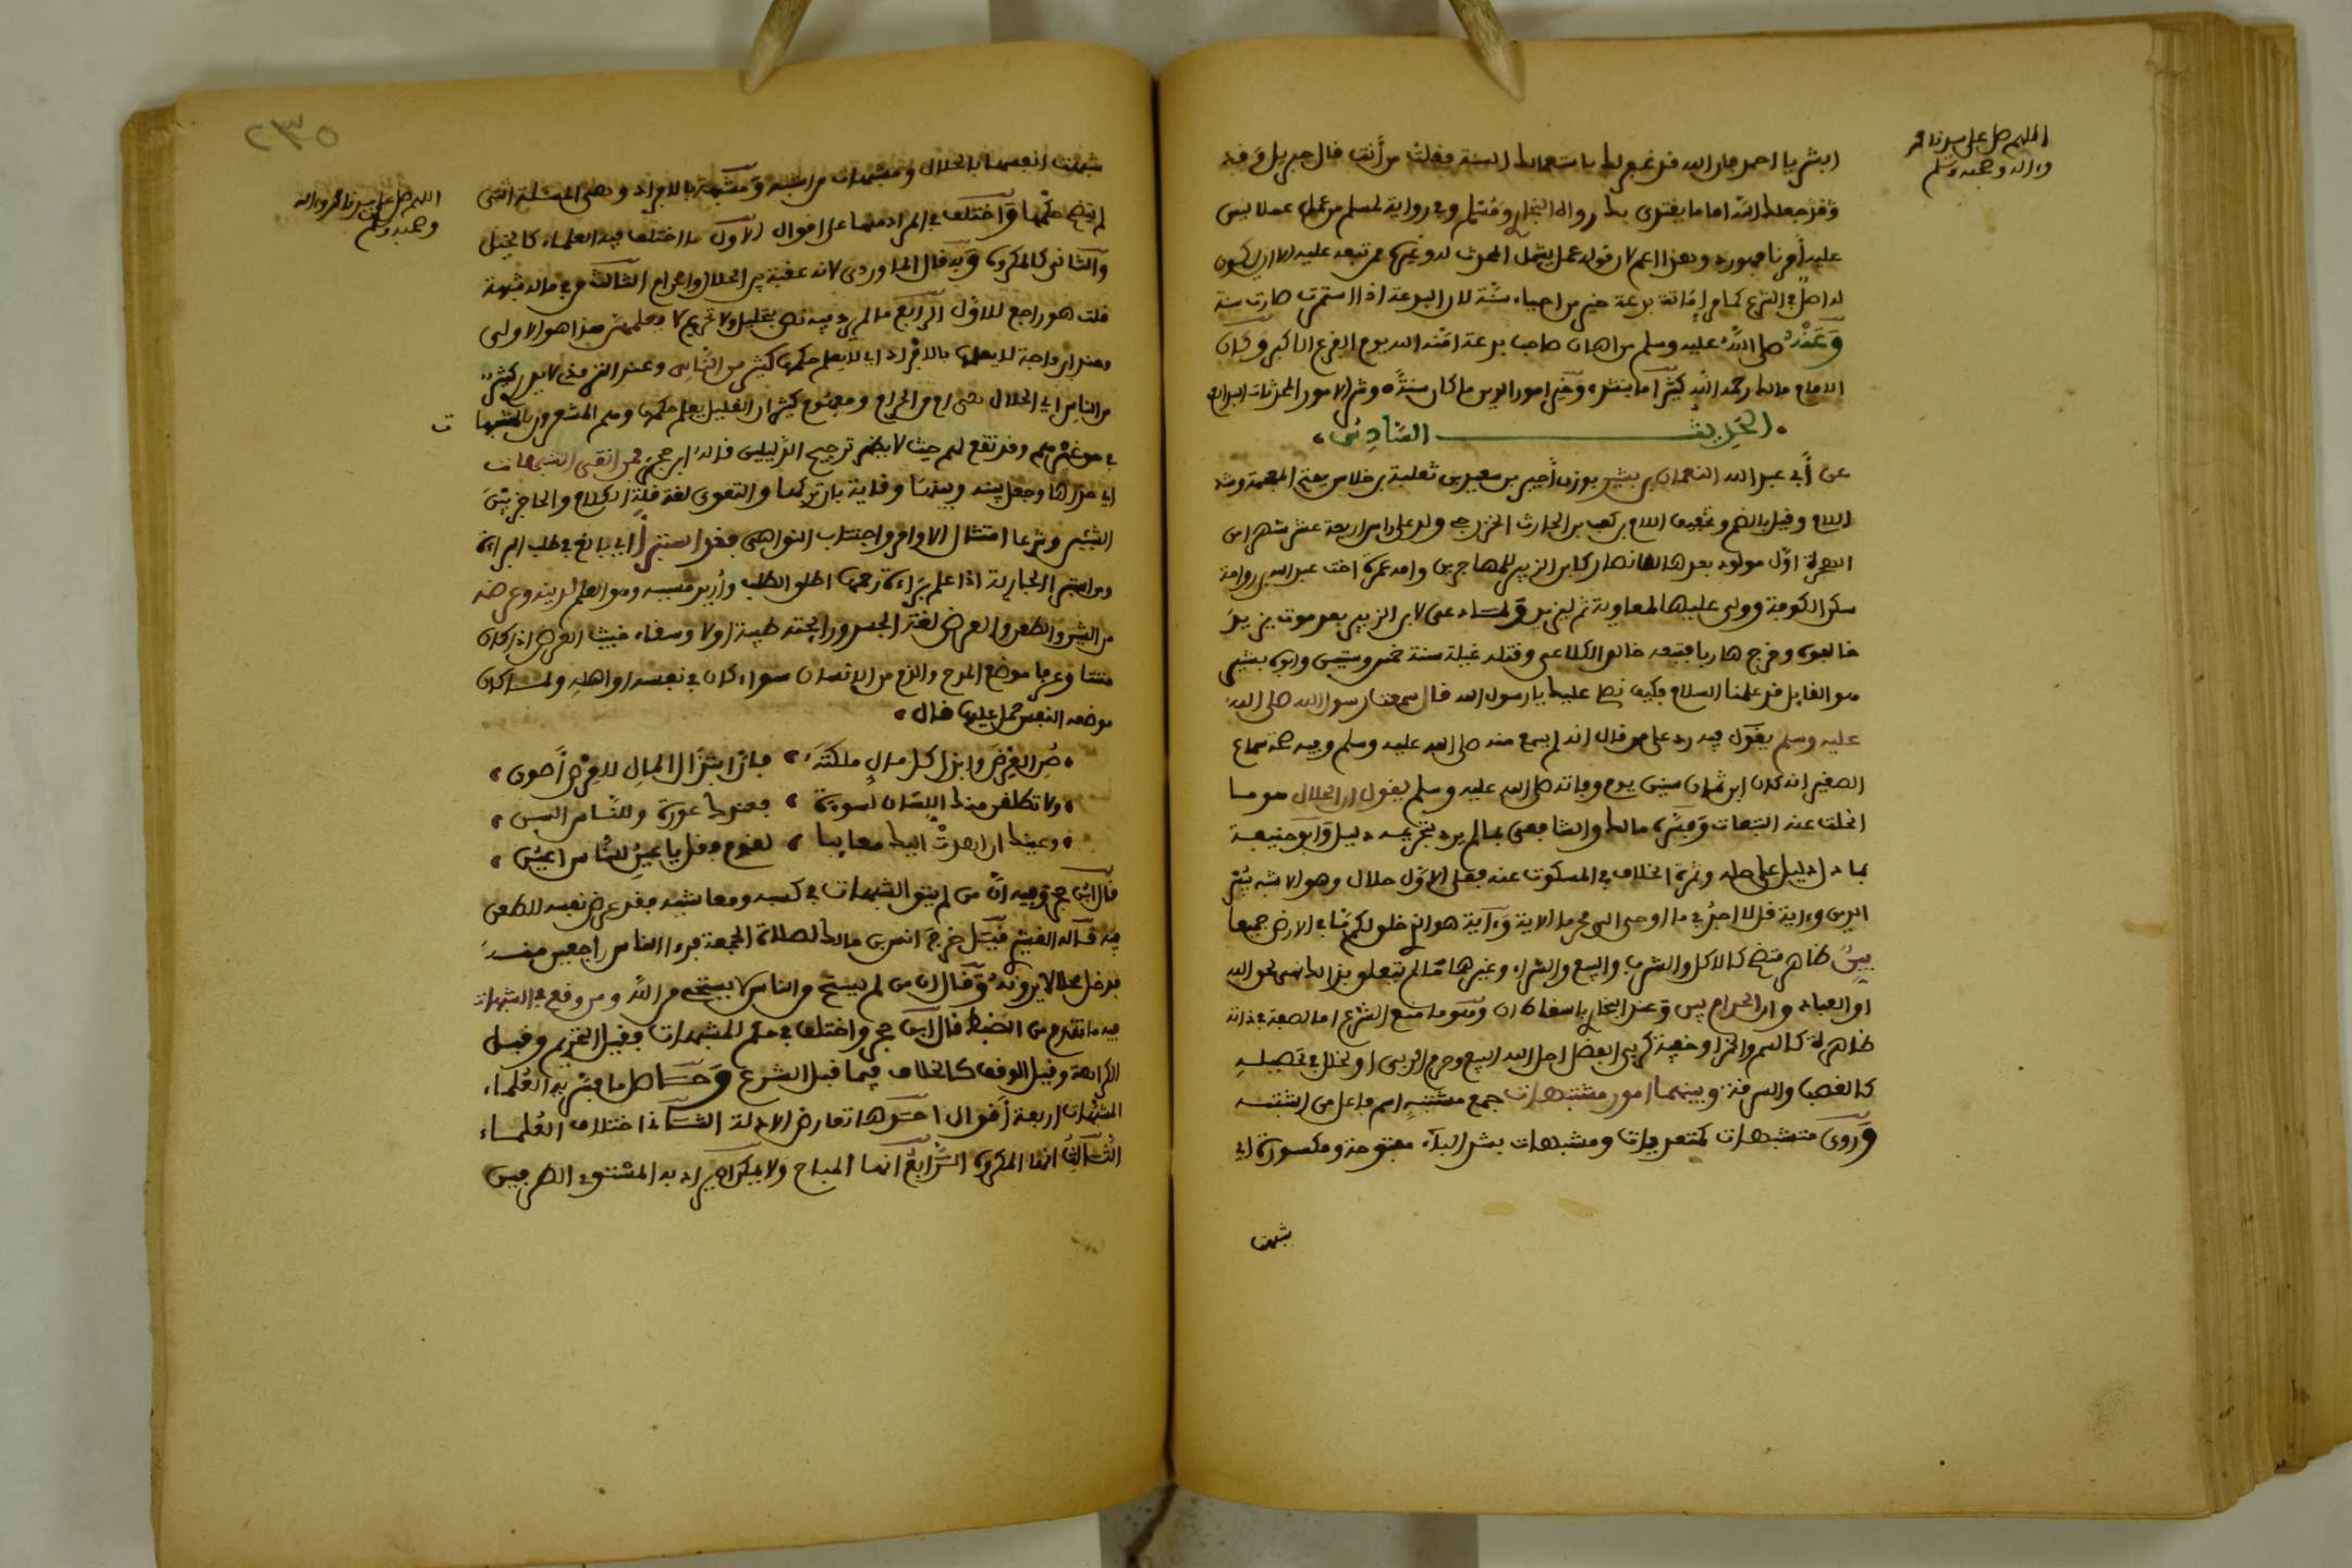 اللهم صل على سيدنا محمد
وءاله وصحبه وسلم
ابشر يا احمد فان الله قد غفر لك باستعمالك السنة فقلت من أنت قال جبريل
وقد جعلك الله اماما يقتدى بك رواه البخاري ومسلم وفي رواية لمسلم من عمل عملا ليس
عليه أمرنا فهو رد وهذا اعم لان قوله عمل يشمل المحدث له وغيره ممن تبعه عليه الا ان يكون
له اصل في الشرع كما مر إماتة بدعة خير من احياء سنة لان البدعة اذا استمرت صارت سنة
وعنه صلى الله عليه وسلم من اهان صاحب بدعة امنه الله يوم الفزع الاكبر وكان
الامام مالك رحمه الله كثيرا ما ينشد وخير امور الدين ما كان سنة وشر الامور المحدثات البدائع
الحديث السادس
عن أبي عبد الله النعمان بن بشير بوزن أمير بن سعد بن ثعلبة بن خلاس بفتح المعجمة وشد
اللام وقيل بالضم وتخفيف اللام بن كعب بن الحارث الخزرجي ولد على راس اربعة عشر شهرا من
الهجرة اول مولود بعدها للانصار كابن الزبير للمهاجرين وامه عمرة اخت عبد الله بن رواحة
سكن الكوفة وولي عليها لمعاوية ثم ليزيد ولما دعى لابن الزبير بعد موت يزيد
خالفوه وخرج هاربا فتبعه خالد الكلاعي وقتله غيلة سنة خمس وستين وابوه بشير
هو القايل قد علمنا السلام فكيف نصلي عليك يا رسول الله قال سمعت رسول الله صلى الله
عليه وسلم يقول فيه رد على من قال انه لم يسمع منه صلى الله عليه وسلم وفيه صحة سماع
الصغير انه كان ابن ثمان سنين يوم وفاته صلى الله عليه وسلم يقول ان الحلال هو ما
انحلت عنه التبعات وفسره مالك والشافعي بما لم يرد بتحريمه دليل وابو حنيفة
بما دل دليل على حله وثمرة الخلاف في المسكوت عنه فعلى الاول حلال وهو الاشبه بيسر
الدين وءاية قل لا اجد في ما اوحي الي محرما الاية وءاية هو الذي خلق لكم ما في الارض جميعا
بين ظاهر متضح كالاكل والشرب والبيع والشراء وغيرها مما لم يتعلق بذاك نهي لحق الله
او العباد وان الحرام بين وعند البخاري باسقاط ان وهو ما منع الشرع اما لصفة في ذاته
ظاهرة كالسم والخمر او خفية كربى الفضل احل الله البيع وحرم الربى او لخلل في تحصيله
كالغصب والسرقة وبينهما امور مشتبهات جمع مشتبه اسم فاعل من اشتبه
وروى متشبهات كمتعرفات ومشبهات بشد الباء مفتوحة ومكسورة اي
شبهت
٢٣٥
اللهم صل على سيدنا محمد وءاله
وصحبه وسلم
شبهت انفسها بالحلال ومشبهات من اشبه ومشبهة بالافراد وهي المسئلة التي
لم يتضح حكمها واختلف في المراد منها على اقوال الاول ما اختلف فيه العلماء كالخيل
والثاني كالمكروه وبه قال الماوردي لانه عقبة بين الحلال والحرام الثالث هي ما له شبهة
قلت هو راجع للاول الرابع ما لم يرد فيه نص بتحليل ولا تحريم لا يعلمهن هذا هو الاولى
وعند ابن ماجة لا يعلمها بالافراد اي لا يعلم حكمها كثير من الناس وعند الترمذي لا يدري كثير
من الناس اي الحلال هي ام من الحرام ومفهوم كثير ان القليل يعلم حكمها وهم المشعرون بالمشبهات
في حق غيرهم وقد تقع لهم حيث لا يظهر ترجيح الدليلين قاله ابن حجر فمن اتقى الشبهات
اي حذرها وجعل بينه وبينها وقاية بان تركها والتقوى لغة قلة الكلام والحاجز بين
الشيئين وشرعا امتثال الاوامر واجتناب النواهي فقد استبرأ اي بالغ في طلب البراءة
من استبرا الجارية اذا علم براءة رحمها اطلق الطلب وأريد مسببه وهو العلم لدينه وعرضه
من الشين والطعن والعرض لغة الجسد ورايحته طيبة اولا وسقاء خبيث العرض اذا كان
منتنا وعرفا موضع المدح والذم من الانسان سواء كان في نفسه او اهله ولما كان
موضعه النفس حمل عليها قال
صن العرض وابذل كل مال ملكته فان ابتذال المال للعرض أصون
ولا تطلقن منك اللسان لسوءة فعندك عورة وللناس السن
وعينك ان اهدت اليك معايبا لقوم فقل يا عين للناس اعين
قال ابن حجر وفيه أن من لم يتق الشبهات في كسبه ومعاشه فقد عرض نفسه للطعن
فيه قال القشيري خرج انس بن مالك لصلاة الجمعة فرءا الناس راجعين منه
فدخل محلا لا يرونه وقال ان من لم يستح من الناس لا يستحي من الله ومن وقع في الشبهات
فيه ما تقدم من الضبط قال ابن حجر واختلف في حكم المشبهات فقيل التحريم وقيل
الكراهة وقيل الوقف كالخلاف فيما قبل الشرع وحاصل ما فسر به العلماء
المشبهات اربعة أقوال احدها تعارض الادلة الثاني اختلاف العلماء
الثالث انها المكروه الرابع انها المباح ولا يمكن ان يراد به المستوي الطرفين